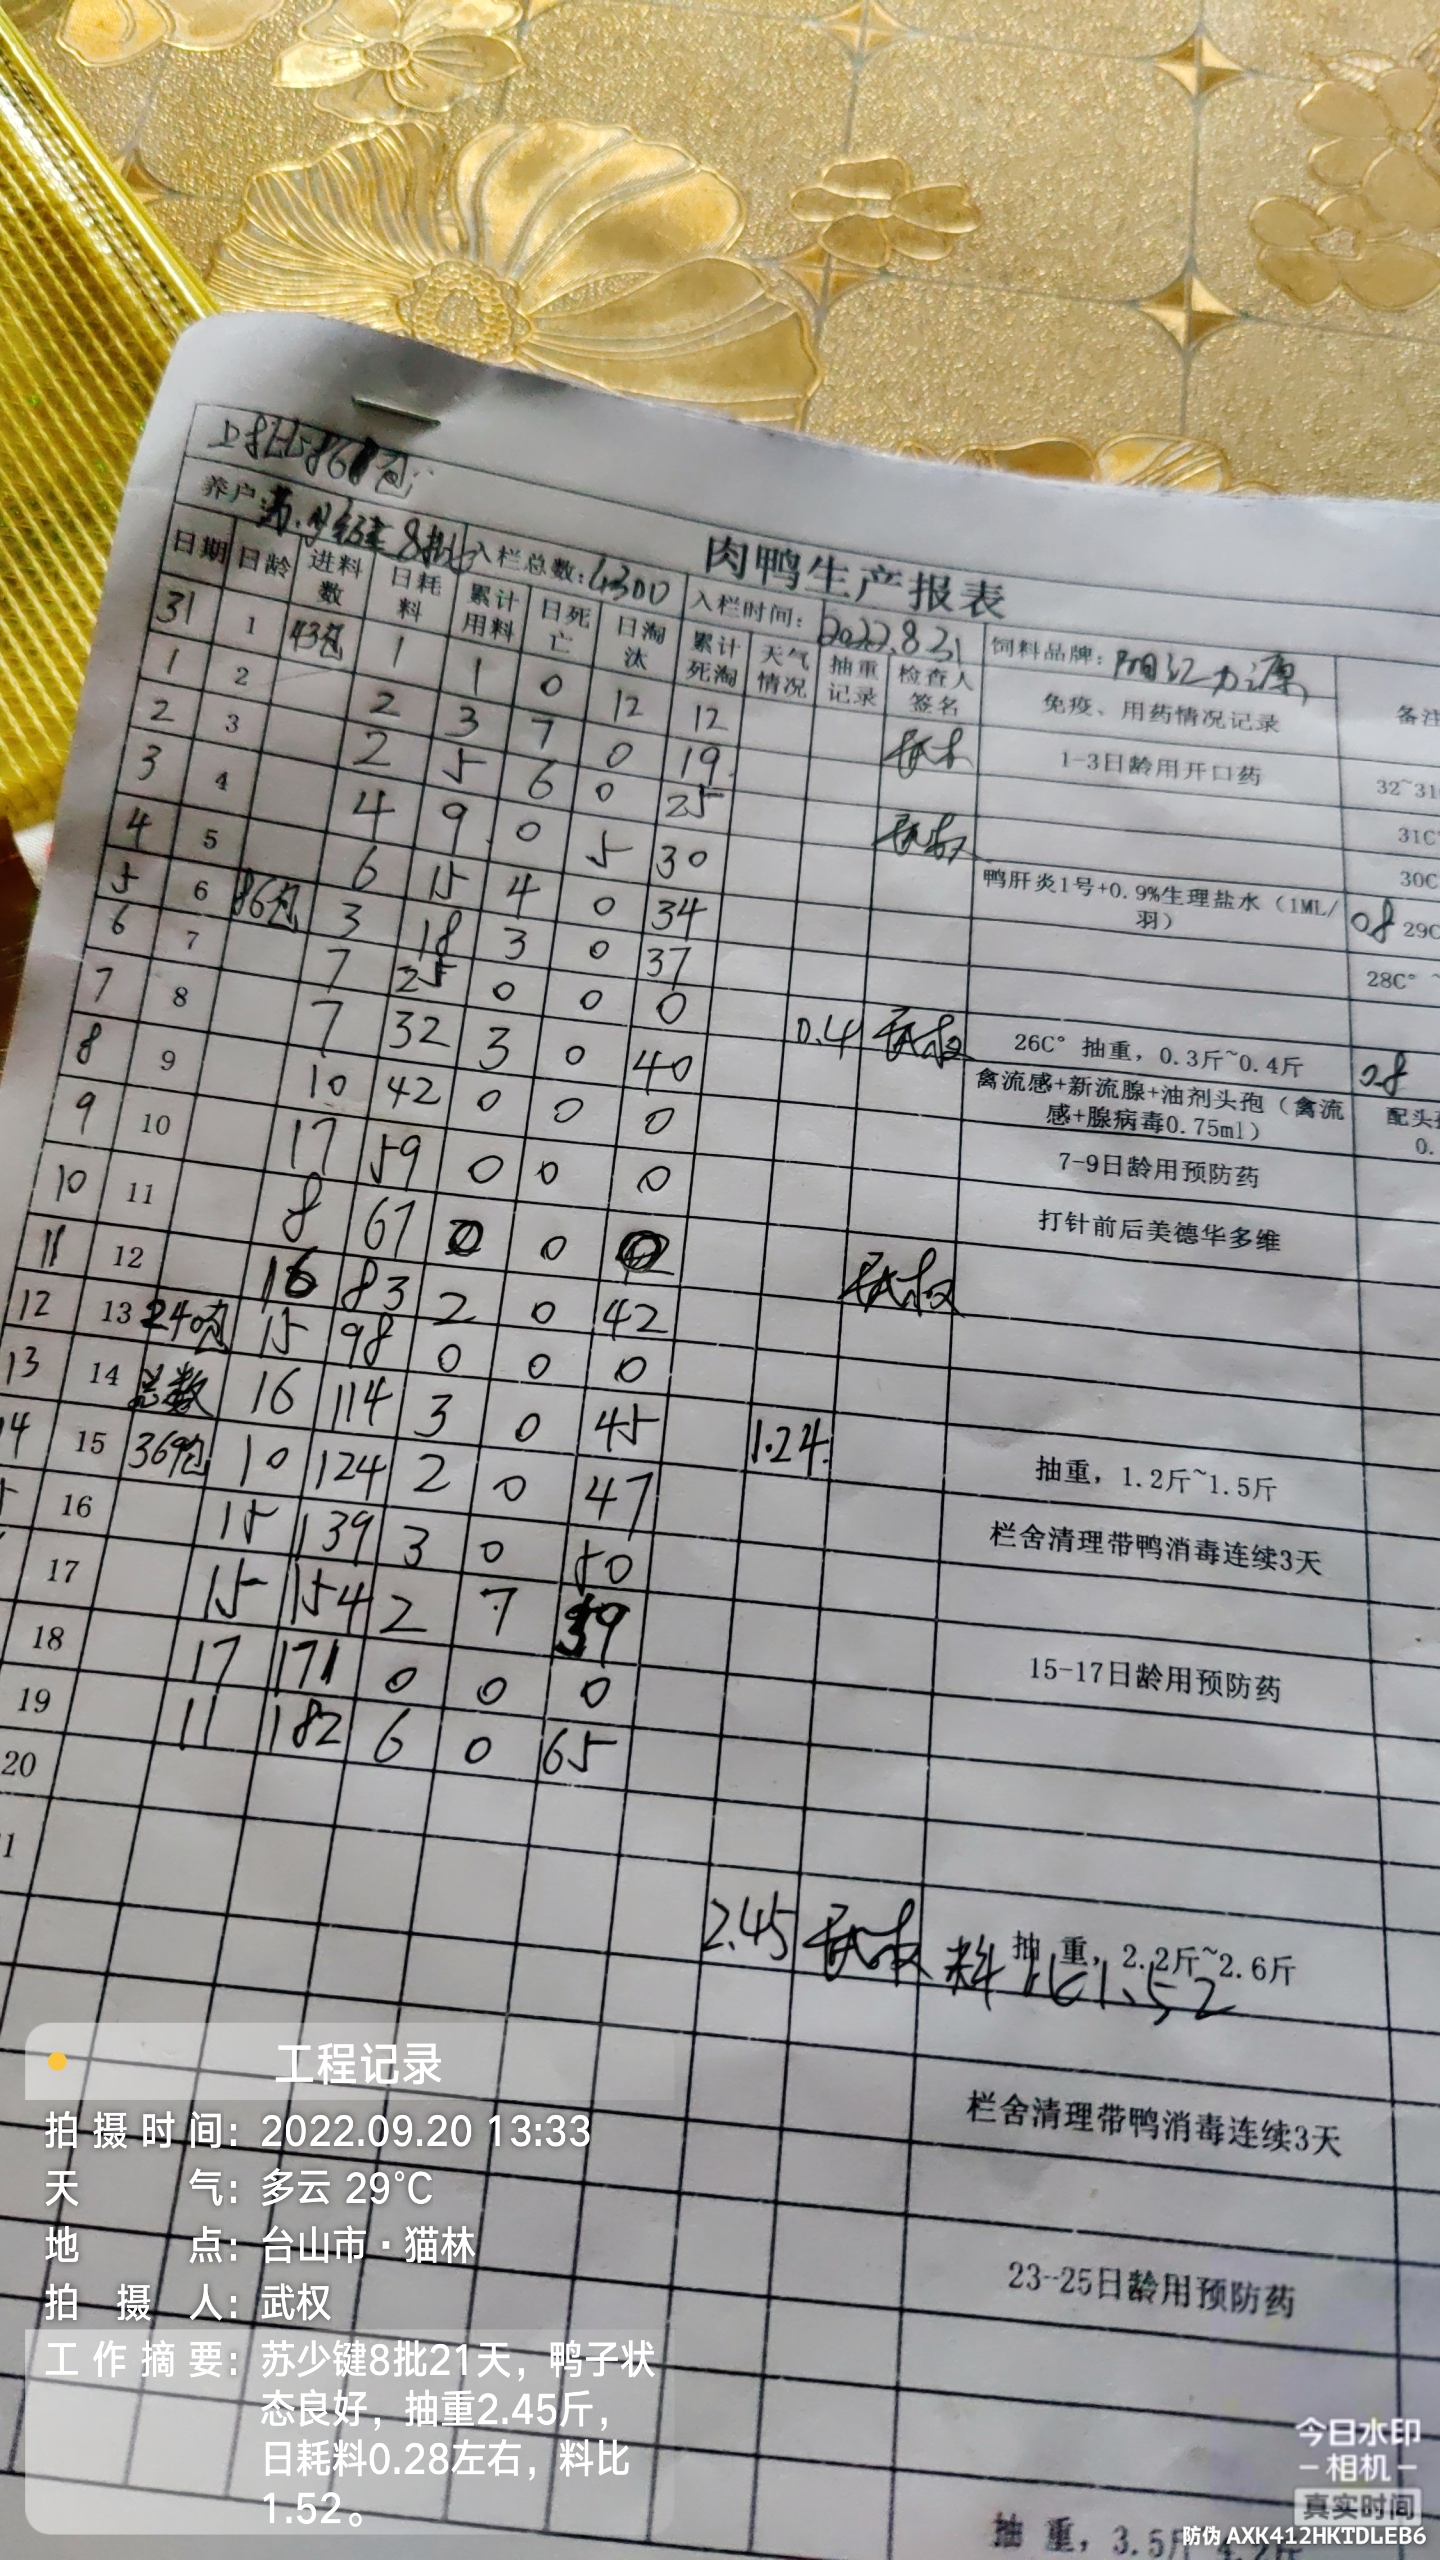 上批868包
肉鸭生产报表
养户: 苏少键 8批 入栏总数: 4300 入栏时间: 2022.8.31 饲料品牌: 阳江力源
日期 日龄 进料数 日耗料 累计用料 日死亡 日淘汰 累计死淘 天气情况 抽重记录 检查人签名 免疫、用药情况记录 备注
31 1 43包 1 1 0 12 12 武权 1-3日龄用开口药 32~31
1 2 2 3 7 0 19 31C°
2 3 2 5 6 0 25 武权 30C
3 4 4 9 0 5 30 鸭肝炎1号+0.9%生理盐水（1ML/羽） 08 29C
4 5 6 15 4 0 34 28C° ~
5 6 86包 3 18 3 0 37
6 7 7 25 0 0 0 0.4 武权 26C° 抽重，0.3斤~0.4斤 0.8
7 8 7 32 3 0 40 禽流感+新流腺+油剂头孢（禽流感+腺病毒0.75ml） 配头孢 0.
8 9 10 42 0 0 0 7-9日龄用预防药
9 10 17 59 0 0 0 打针前后美德华多维
10 11 8 67 0 0 0 武权
11 12 16 83 2 0 42
12 13 240包 15 98 0 0 0
13 14 总数 16 114 3 0 45 1.24 抽重，1.2斤~1.5斤
14 15 369包 10 124 2 0 47 栏舍清理带鸭消毒连续3天
5 16 15 139 3 0 50
17 15 154 2 7 59 15-17日龄用预防药
18 17 171 0 0 0
19 11 182 6 0 65
20
1 2.45 武权 抽 重，2.2斤~2.6斤
料比1.52
栏舍清理带鸭消毒连续3天
23-25日龄用预防药
抽 重，3.5斤~4.2斤
工程记录
拍摄时间：2022.09.20 13:33
天气：多云 29℃
地点：台山市·猫林
拍摄人：武权
工作摘要：苏少键8批21天，鸭子状
态良好，抽重2.45斤，
日耗料0.28左右，料比
1.52。
今日水印
-相机-
真实时间
防伪 AXK412HKTDLEB6